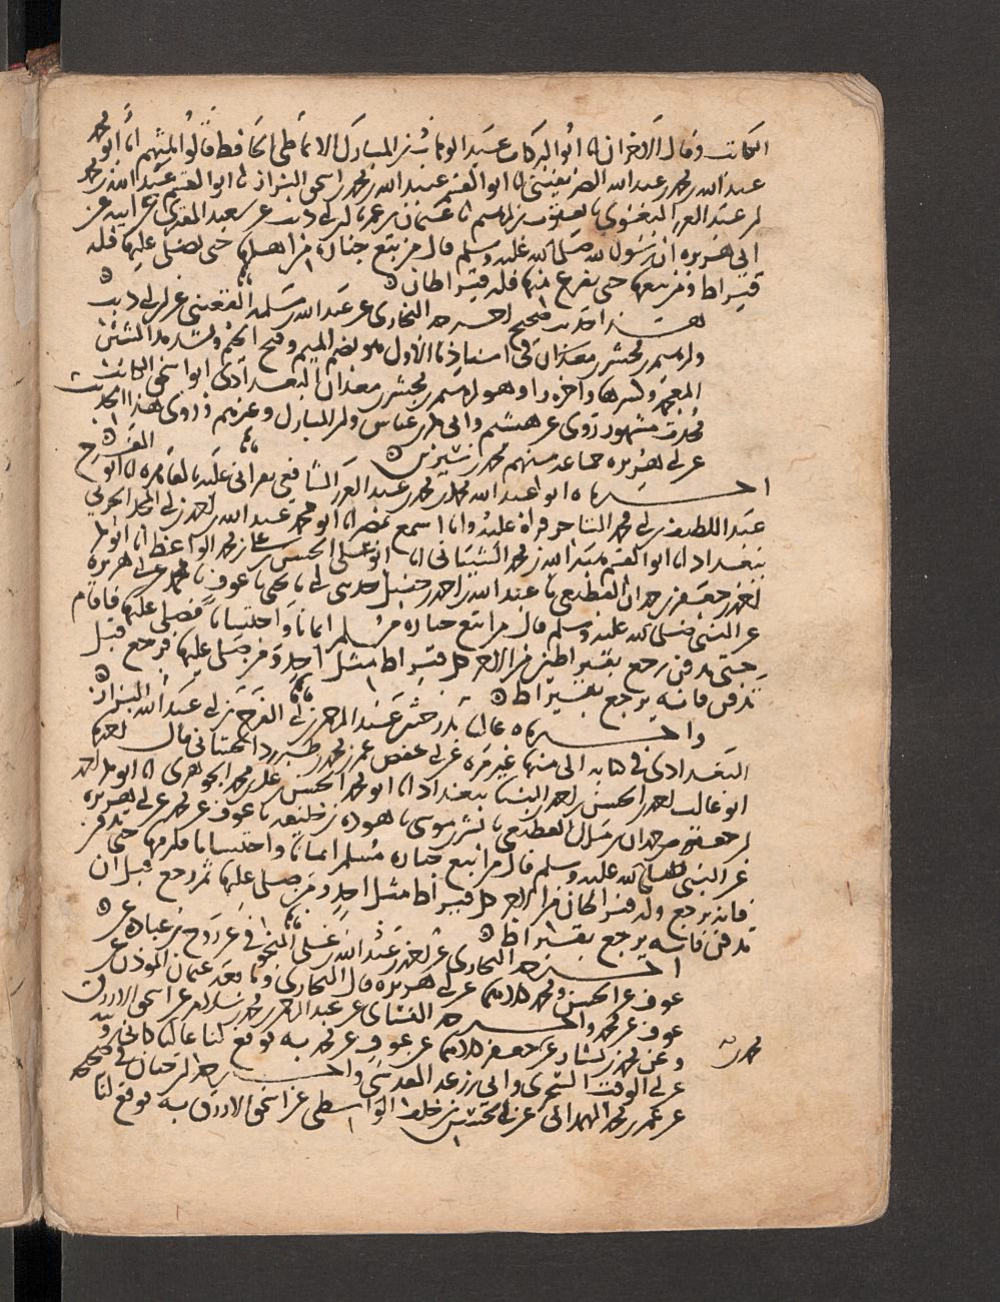 الكاتب وقال الآخران انا ابو البركات عبد الوهاب بن المبارك الانماطي الحافظ قالوا انا ابو محمد
عبد الله بن محمد بن عبد الله الصريفيني انا ابو القسم عبيد الله بن محمد بن اسحق البزاز نا ابو القسم عبد الله بن محمد
بن عبد العزيز البغوي نا بن عمر نا ابن ابي ذيب عن سعيد المقبري عن ابيه عن
ابي هريره ان رسول الله صلى الله عليه وسلم قال من تبع جنازة من اهلها حتى يصلى عليها فله
قيراط ومن تبعها حتى يفرغ منها فله قيراطان
هذا حديث صحيح اخرجه البخاري عن عبد الله بن مسلمة القعنبي عن ابن ابي ذيب
في اسناد الاول هو بضم الميم وفتح الحاء
المعجمة وكسرها واخره را وهو البغدادي ابو اسحق الكاتب
محدث مشهور روى عن هشيم وابي بكر بن عياش وابن المبارك وغيرهم وروى هذا الحديث
عن ابي هريره جماعة منهم محمد بن سيرين
اخبرناه ابو عبد الله محمد بن محمد بن عبد العزيز الشافعي بقراتي عليه بالقاهرة انا ابو الفرج
عبد اللطيف بن ابي محمد التاجر قراة عليه وانا اسمع بمصر انا ابو محمد عبد الله بن احمد بن ابي المجد الحربي
ببغداد انا ابو القسم هبة الله بن محمد الشيباني انا ابو علي الحسن بن علي بن محمد الواعظ انا ابو بكر
احمد بن جعفر بن حمدان القطيعي نا عبد الله بن احمد بن حنبل حدثني ابي نا يحيى نا عوف نا محمد عن ابي هريره
عن النبي صلى الله عليه وسلم قال من اتبع جنازة مسلم ايمانا واحتسابا فصلى عليها فاقام
حتى تدفن رجع بقيراطين من الاجر كل قيراط مثل احد ومن صلى عليها فرجع قبل
تدفن فانه يرجع بقيراط
واخبرناه عاليا بدرجتين عبد الرحمن بن ابي الفرج بن ابي عبد الله البزاز
البغدادي في كتابه الي منها غير مرة عن ابي حفص عمر بن محمد بن طبرزد قال اخبرنا
ابو غالب احمد بن الحسن بن احمد بن البنا ببغداد انا ابو محمد الحسن بن علي بن محمد الجوهري انا ابو بكر احمد
بن جعفر بن حمدان بن مالك القطيعي نا بشر بن موسى نا هوذة بن خليفة نا عوف عن محمد عن ابي هريره
عن النبي صلى الله عليه وسلم قال من اتبع جنازة مسلم ايمانا واحتسابا فلزمها حتى تدفن
فانه يرجع وله قيراطان من الاجر كل قيراط مثل احد ومن صلى عليها ثم رجع قبل ان
تدفن فانه يرجع بقيراط
اخرجه البخاري عن احمد بن عبد الله بن علي المنجوفي عن روح بن عبادة عن
عوف عن الحسن ومحمد كلاهما عن ابي هريره قال البخاري وتابعه عثمان المؤذن عن
عوف عن محمد واخرجه النسائي عن عبد الرحمن بن محمد بن سلام عن اسحق الازرق
وعن محمد بن بشار عن جعفر كلاهما عن عوف عن محمد به فوقع لنا عاليا
عن ابي الوقت السجزي وابي زرعة المقدسي واخرجه ابن حبان في صحيحه
عن عمر بن محمد الهمداني عن خلف الواسطي عن اسحق الازرق به فوقع لنا